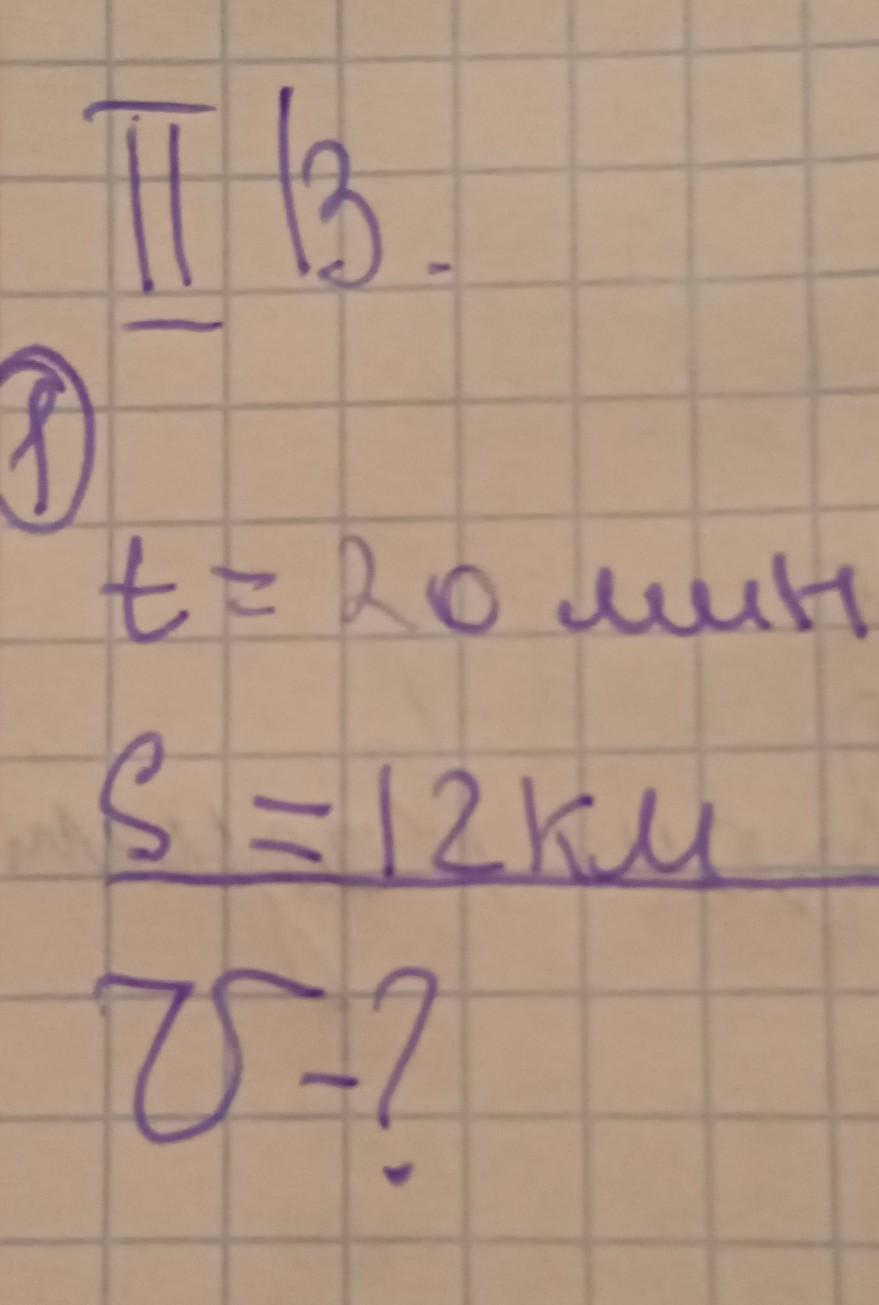 II В.
1
t = 20 мин
S = 12 км
υ - ?